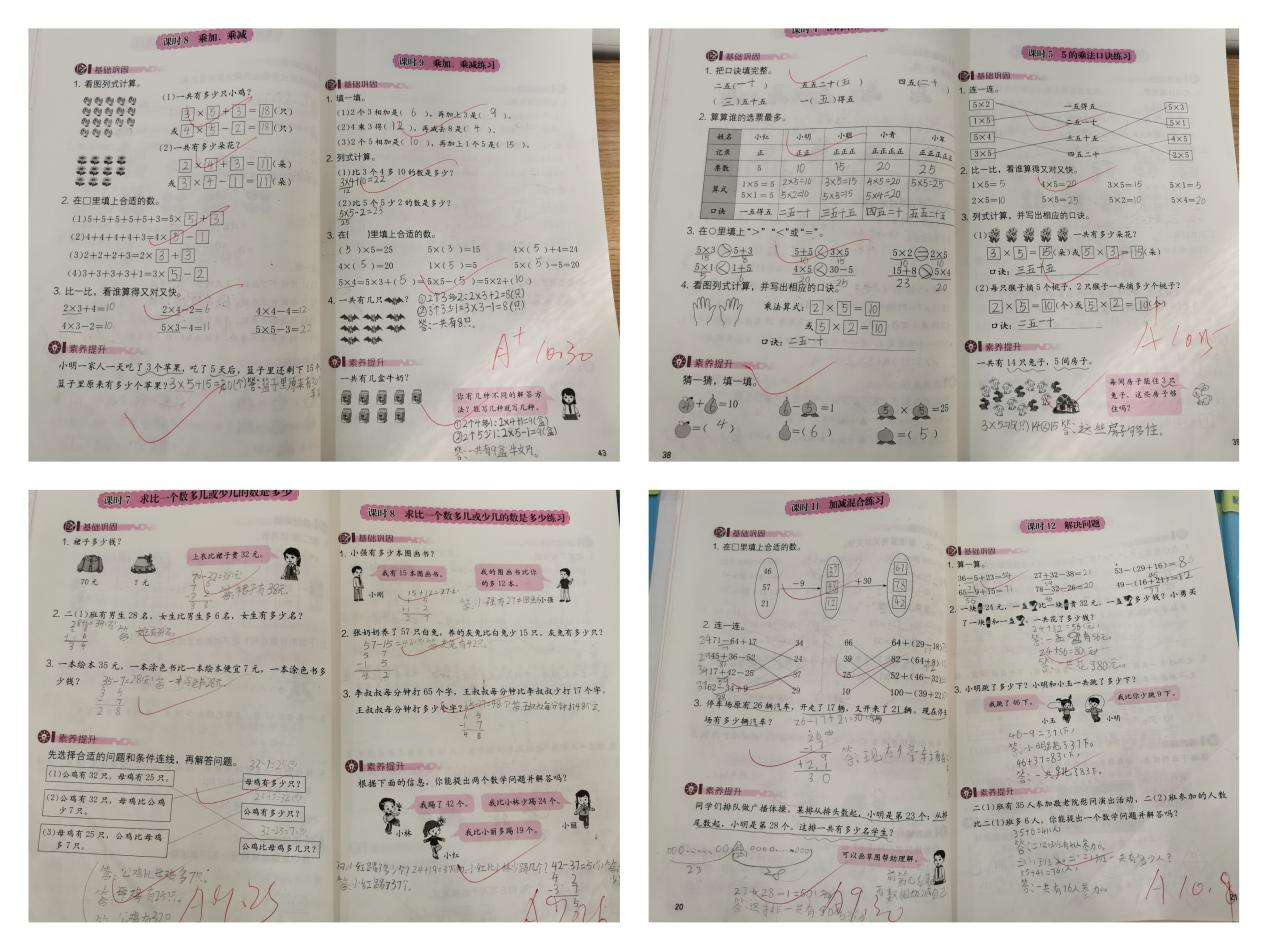 课时8 乘加、乘减
基础巩固
1. 看图列式计算。
(1)一共有多少只小鸡?
3×5+3=18(只)
或4×5-2=18(只)
(2)一共有多少朵花?
2×4+3=11(朵)
或3×4-1=11(朵)
2. 在□里填上合适的数。
(1)5+5+5+5+5+3=5×5+3
(2)4+4+4+4+3=4×5-1
(3)2+2+2+3=2×3+3
(4)3+3+3+3+1=3×5-2
3. 比一比,看谁算得又对又快。
2×3+4=10 2×4-2=6 4×4-4=12
4×3-2=10 5×3-4=11 5×5-3=22
素养提升
小明一家人一天吃了3个苹果,吃了5天后,篮子里还剩下15个
篮子里原来有多少个苹果?3×5+15=30(个)
课时9 乘加、乘减练习
基础巩固
1. 填一填。
(1)2个3相加是(6),再加上3是(9)。
(2)4乘3得(12),再减去8是(4)。
(3)2个5相加是(10),再加上1个5是(15)。
2. 列式计算。
(1)比3个4多10的数是多少?
3×4+10=22
12
(2)比5个5少2的数是多少?
5×5-2=23
25
3. 在( )里填上合适的数。
(5)×5=25 5×(3)=15 4×(5)+4=24
4×(5)=20 1×(5)=5 5×(5)-5=20
5×4=5×3+(5)=5×5-(5)=5×2+(10)
4. 一共有几只
①2个3多2:2×3+2=8(只)
②3个3少1:3×3-1=8(只)
答:一共有8只。
素养提升
一共有几盒牛奶?
你有几种不同的解答方
法?能写几种就写几种。
①2个4多1:2×4+1=9(盒)
②2个5少1:2×5-1=9(盒)
答:一共有9盒牛奶。
A+ 10.30
43
基础巩固
1. 把口诀填完整。
二五(一十) 五五二十(五) 四五(二十
(三)五十五 一(五)得五
2. 算算谁的选票最多。
姓名 小红 小明 小聪 小青 小军
记录 正 正正 正正正 正正正正 正正正正
票数 5 10 15 20 25
算式 1×5=5 2×5=10 3×5=15 4×5=20 5×5=25
5×1=5 5×2=10 5×3=15 5×4=20
口诀 一五得五 二五一十 三五十五 四五二十 五五二十五
3. 在○里填上“>”“<”或“=”。
5×3>5+3 5+5<3×5 5×2=2×5
5×1<1+5 4×5<30-5 15+8>5×4
4. 看图列式计算,并写出相应的口诀。
乘法算式:2×5=10
或5×2=10
口诀:二五一十
素养提升
猜一猜,填一填。
4+6=10 -5=1 5×5=25
=(4) =(6) =(5)
38
课时5 5的乘法口诀练习
基础巩固
1. 连一连。
5×2 一五得五 5×3
1×5 二五一十 5×1
5×4 三五十五 4×5
3×5 四五二十 2×5
2. 比一比,看谁算得又对又快。
1×5=5 4×5=20 3×5=15 5×1=5
2×5=10 5×5=25 5×2=10 5×4=20
3. 列式计算,并写出相应的口诀。
(1) 一共有多少朵花?
3×5=15(朵)或5×3=15(朵)
口诀:三五十五
(2)每只猴子摘5个桃子,2只猴子一共摘多少个桃子?
2×5=10(个)或5×2=10(个)
口诀:二五一十
素养提升
一共有14只兔子,5间房子。
每间房子能住3只
兔子,这些房子够
住吗?
3×5=15(只)14<15 答:这些房子够住。
39
课时7 求比一个数多几或少几的数是多少
基础巩固
1. 裙子多少钱?
上衣比裙子贵32元。
70元 ?元
70-32=38(元)
2. 二(1)班有男生28名,女生比男生多6名,女生有多少名?
3. 一本绘本35元,一本涂色书比一本绘本便宜7元,一本涂色书多
少钱? 35-7=28(元)
素养提升
先选择合适的问题和条件连线,再解答问题。
(1)公鸡有32只,母鸡有25只。
母鸡有多少只?
(2)公鸡有32只,母鸡比公鸡
少7只。
公鸡有多少只?
(3)母鸡有25只,公鸡比母鸡
多7只。
公鸡比母鸡多几只?
A 9.25
课时8 求比一个数多几或少几的数是多少练习
基础巩固
1. 小强有多少本图画书?
我有15本图画书。
我的图画书比你
的多12本。
小刚
小强
2. 张奶奶养了57只白兔,养的灰兔比白兔少15只。灰兔有多少只?
3. 李叔叔每分钟打65个字,王叔叔每分钟比李叔叔少打17个字。
王叔叔每分钟打多少个字?
素养提升
根据下面的信息,你能提出两个数学问题并解答吗?
我踢了42个。
我比小林少踢24个。
小林
我比小丽多踢19个。
小丽
小红
课时11 加减混合练习
基础巩固
1. 在□里填上合适的数。
46 37 67
57 -9 48 +30 78
21 12 42
2. 连一连。
71-64+17 34 66 64+(29-18)
45+36-52 24 39 82-(64+8)
17+42-25 37 75 52+(46-32)
62-34+9 29 10 100-(39+22)
3. 停车场原有26辆汽车,开走了17辆,又开来了21辆。现在停车
场有多少辆汽车? 26-17+21=30(辆)
素养提升
同学们排队做广播体操,某排从排头数起,小明是第23个;从排
尾数起,小明是第28个。这排一共有多少名学生?
可以画草图帮助理解。
23 28
23+28-1=50(名)
A 9.30
20
课时12 解决问题
基础巩固
1. 算一算。
36-5+23=54 27+32-38=21 53-(29+16)=8
65-9+15=71 78-32-26=20 49-(16+21)=12
2. 一块 24元,一直 比一块 贵32元,一直 多少钱?小勇买
了一块 和一直 ,一共花了多少钱?
24+32=56(元)
24+56=80(元)
3. 小明跳了多少下?小明和小玉一共跳了多少下?
我跳了46下。
我比你少跳9下。
小玉
小明
46-9=37(下)
答:小明跳了37下。
46+37=83(下)
答:一共跳了83下。
素养提升
二(1)班有35人参加敬老院慰问演出活动,二(2)班参加的人数
比二(1)班多6人。你能提出一个数学问题并解答吗?
35+6=41(人)
35+41=76(人)
答:一共有76人参加。
A 10.8